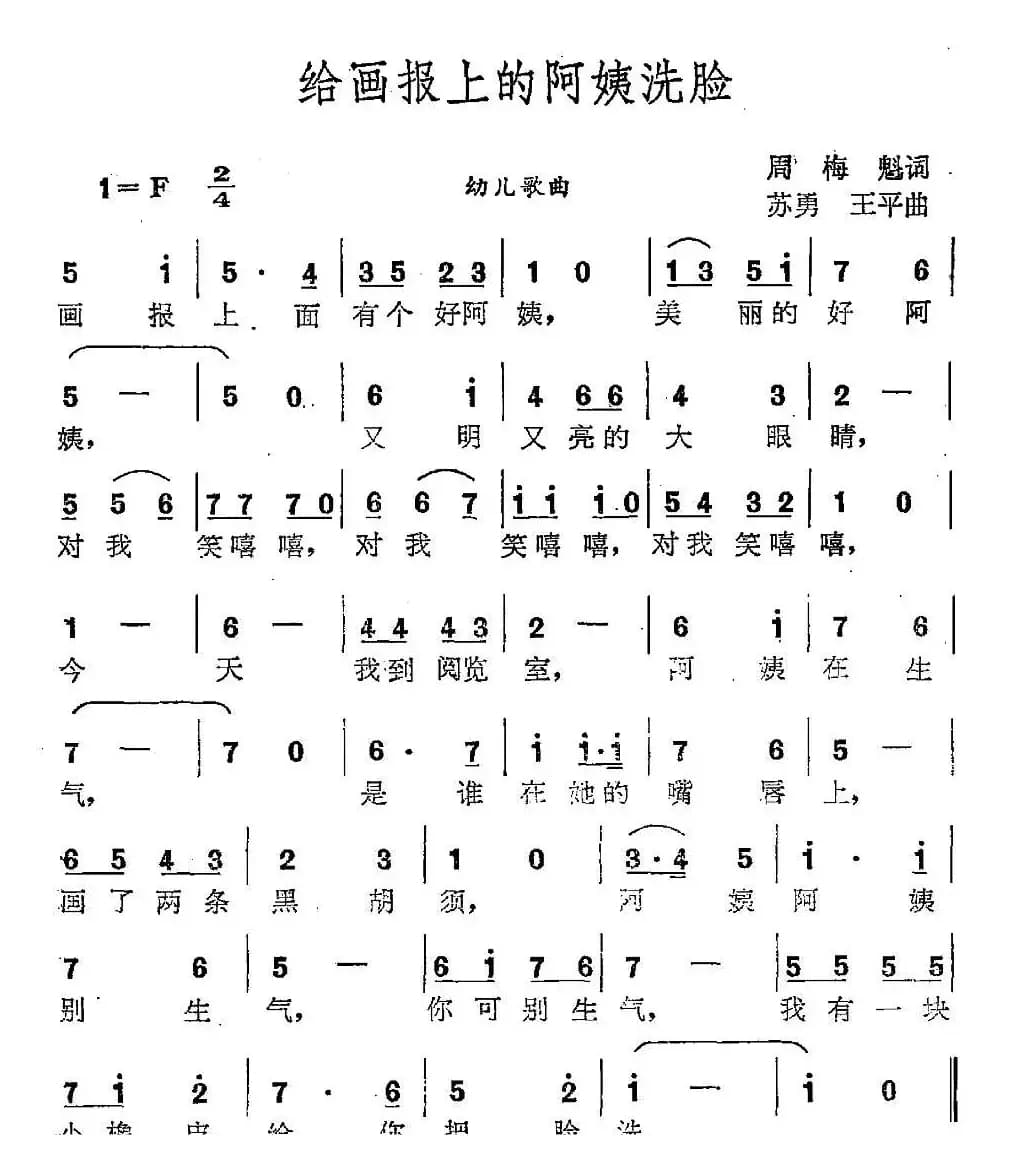 给画报上的阿姨洗脸
1=F 2/4 幼儿歌曲 周梅魁词
苏勇 王平曲
5 i̇ | 5· 4 | 35 23 | 1 0 | 13 5i̇ | 7 6 |
画报上面有个好阿姨,美丽的好阿
5 — | 5 0 | 6 i̇ | 4 66 | 4 3 | 2 — |
姨,又明又亮的大眼睛,
5 5 6 | 77 70 | 6 6 7 | i̇i̇ i̇0 | 54 32 | 1 0 |
对我笑嘻嘻,对我笑嘻嘻,对我笑嘻嘻,
1 — | 6 — | 44 43 | 2 — | 6 i̇ | 7 6 |
今天我到阅览室,阿姨在生
7 — | 7 0 | 6· 7 | i̇ i̇·i̇ | 7 6 | 5 — |
气,是谁在她的嘴唇上,
65 43 | 2 3 | 1 0 | 3·4 5 | i̇· i̇ |
画了两条黑胡须,阿姨阿姨
7 6 | 5 — | 6i̇ 76 | 7 — | 55 55 |
别生气,你可别生气,我有一块
7i̇ 2̇ | 7· 6̇ | 5 2̇ | i̇ — | i̇ 0 ‖
小橡皮给你把脸洗